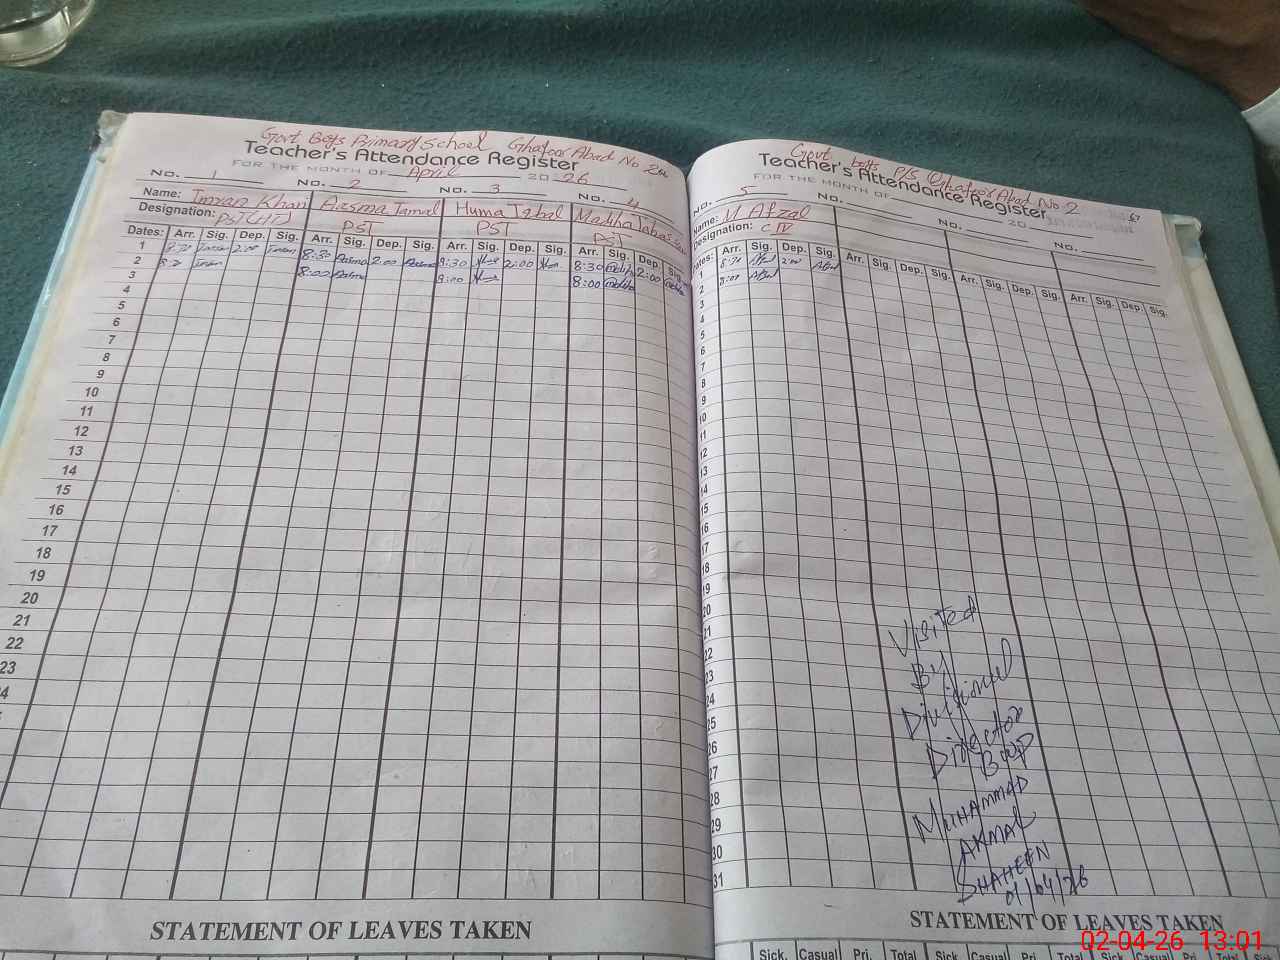 Govt Boys Primary School Ghafoor Abad No 2
Teacher's Attendance Register
FOR THE MONTH OF April 2026
NO. 1 NO. 2 NO. 3 NO. 4
Name: Imran Khan Aasma Jamal Huma Iqbal Madiha
Designation: PST(HT) PST PST PST
Dates: Arr. Sig. Dep. Sig. Arr. Sig. Dep. Sig. Arr. Sig. Dep. Sig. Arr. Sig. Dep. Sig.
1 8:30 Imran 2:00 Imran 8:30 Aasma 2:00 Aasma 8:30 2:00 8:30 Madiha 2:00 Madiha
2 Imran 8:00 Aasma 8:00 8:00 Madiha
3
4
5
6
7
8
9
10
11
12
13
14
15
16
17
18
19
20
21
22
23
4
STATEMENT OF LEAVES TAKEN
Govt boys P/S Ghafoor Abad No 2
Teacher's Attendance Register
FOR THE MONTH OF 20
67
NO. 5 NO. NO. NO.
Name: M Afzal
Designation: C IV
Dates: Arr. Sig. Dep. Sig. Arr. Sig. Dep. Sig. Arr. Sig. Dep. Sig. Arr. Sig. Dep. Sig.
1 8:30 Afzal 2:00 Afzal
2 8:00 Afzal
3
4
5
6
7
8
9
10
11
12
13
14
15
16
17
18
19
20
21
22
23
24
25
26
27
28
29
30
31
Visited
By
Divisional
Director
BWP
MUHAMMAD
AKMAL
SHAHEEN
01/04/26
STATEMENT OF LEAVES TAKEN
Sick. Casual Pri. Total Sick. Casual Pri. Total Sick. Casual Pri. Total Sick
02-04-26 13:01